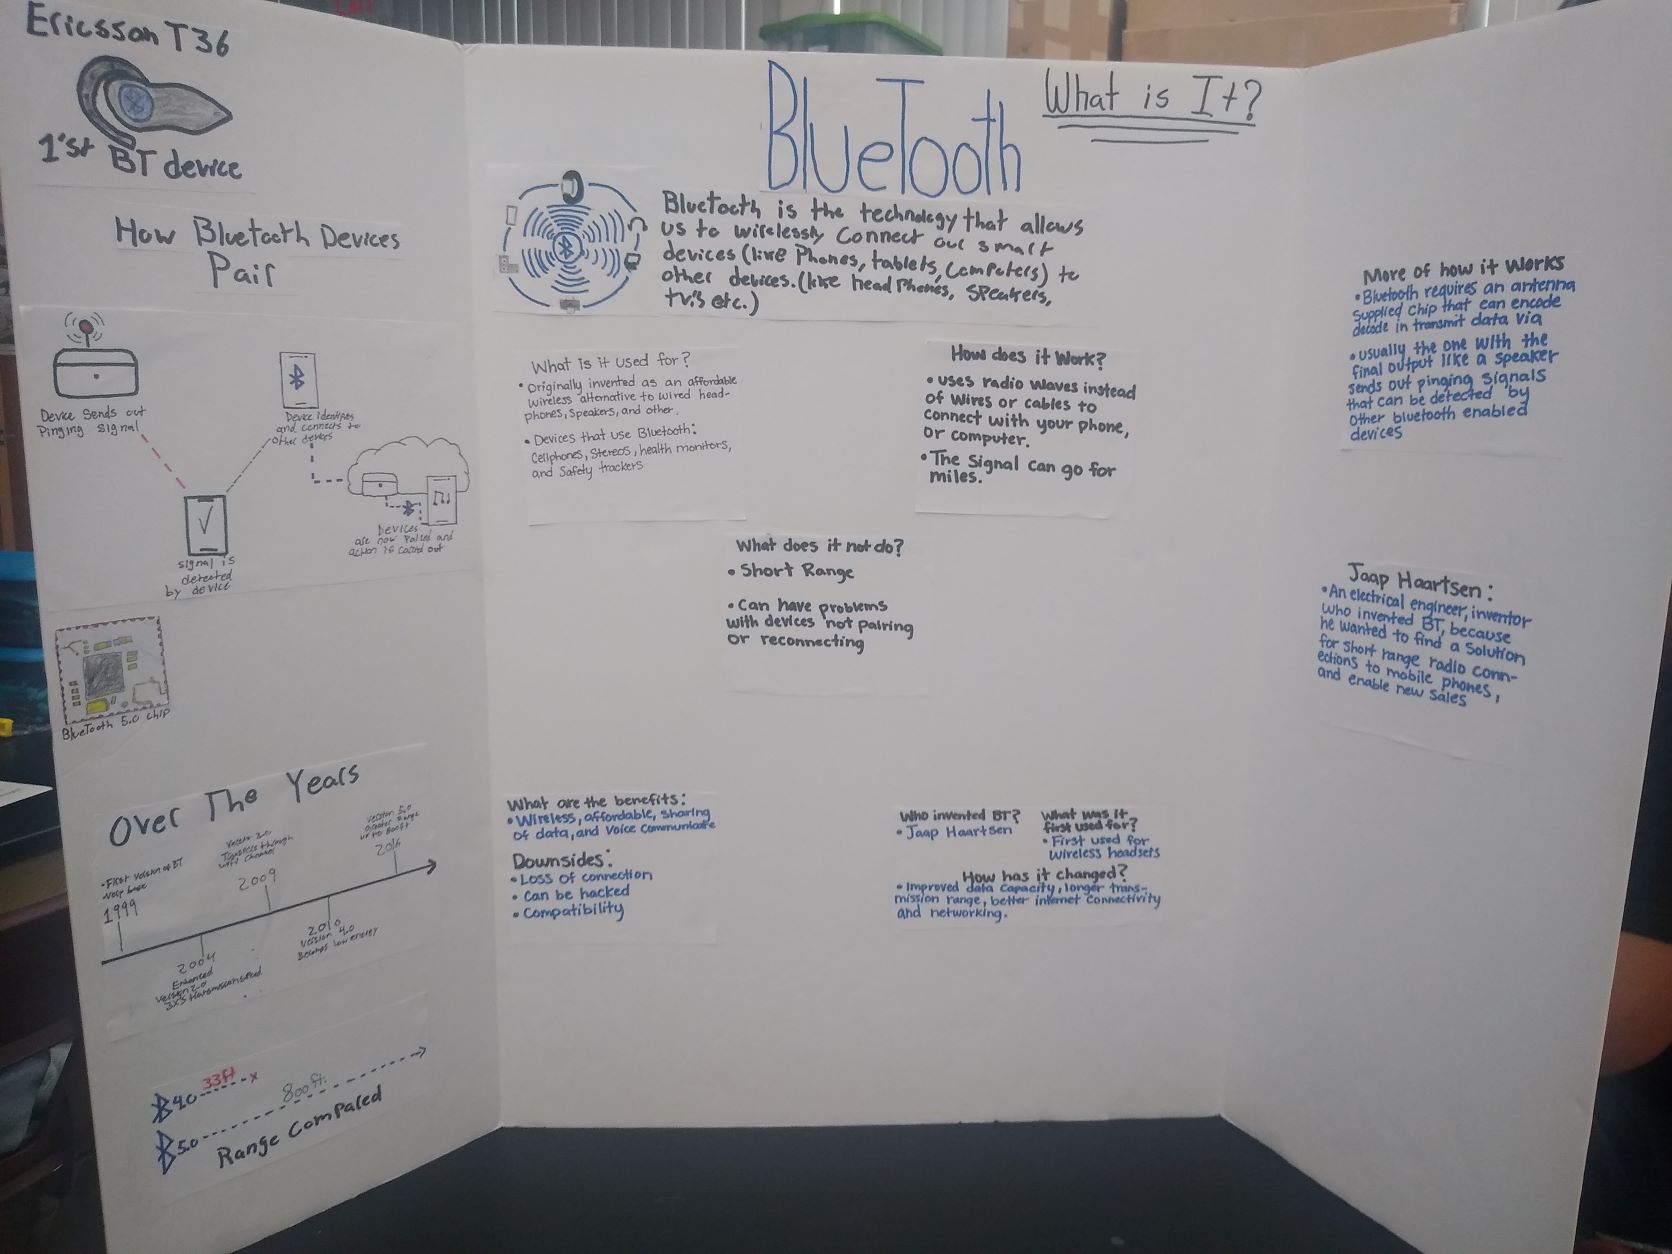 Ericsson T36
1'st BT device
How Bluetooth Devices
Pair
Device Sends out
Pinging Signal
Device identifies
and connects to
other devices
signal is
detected
by device
Devices
are now Paired and
action is carried out
BlueTooth 5.0 chip
Over The Years
•First version of BT
very base
1999
2004
Enhanced
Version 2.0
3X's transmission speed
Version 3.0
Transfers through
WiFi channel
2009
2010
Version 4.0
Becomes low energy
Version 5.0
Greater Range
up to 800ft
2016
4.0 33ft x
5.0 800ft.
Range Compared
BlueTooth
What is It?
Bluetooth is the technology that allows
us to wirelessly Connect our smart
devices (like Phones, tablets, Computers) to
other devices. (like head Phones, Speakers,
tv's etc.)
What is it used for?
• Originally invented as an affordable
wireless alternative to wired head-
phones, Speakers, and other.
• Devices that use Bluetooth:
Cellphones, Stereos, health monitors,
and Safety trackers
How does it Work?
• uses radio waves instead
of wires or cables to
connect with your phone,
or computer.
• The Signal can go for
miles.
What does it not do?
• Short Range
• Can have problems
with devices not pairing
or reconnecting
What are the benefits:
• Wireless, affordable, sharing
of data, and Voice Communicate
Downsides:
• Loss of connection
• Can be hacked
• Compatibility
Who invented BT?
• Jaap Haartsen
What was it
first used for?
• First used for
wireless headsets
How has it changed?
• Improved data capacity, longer trans-
mission range, better internet connectivity
and networking.
More of how it Works
• Bluetooth requires an antenna
Supplied Chip that can encode
decode in transmit data via
• usually the one with the
final output like a speaker
sends out pinging signals
that can be detected by
other bluetooth enabled
devices
Jaap Haartsen:
• An electrical engineer, inventor
who invented BT, because
he wanted to find a Solution
for short range radio conn-
ections to mobile phones,
and enable new sales